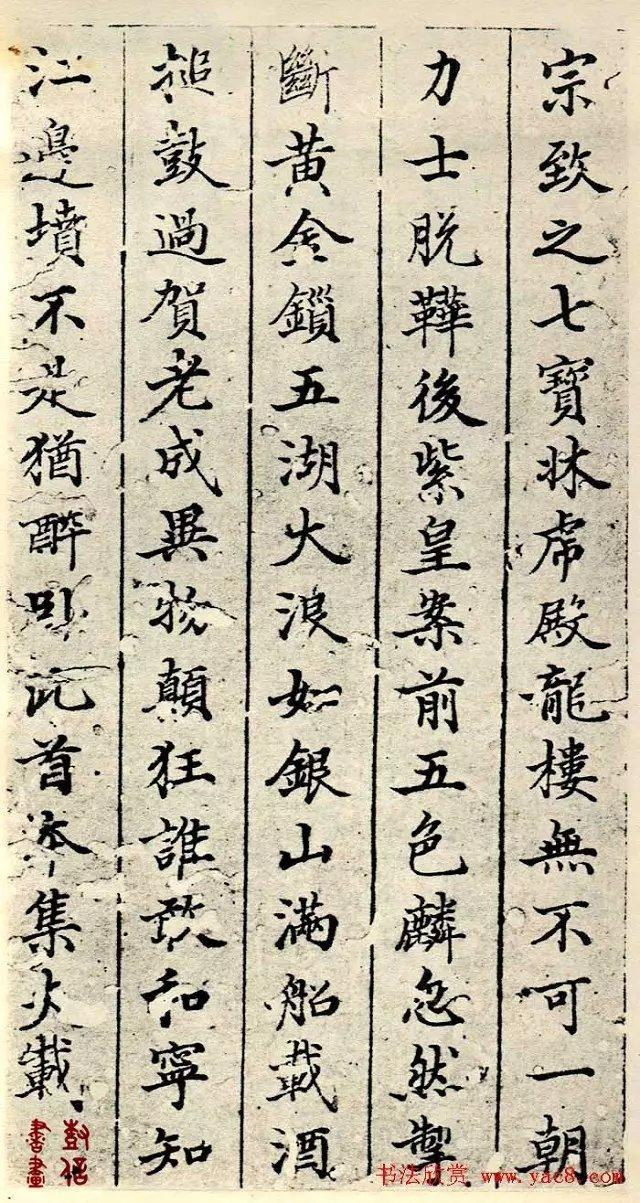 宗致之七寶牀虎殿龍樓無不可一朝
力士脫鞾後紫皇案前五色麟忽然掣
斷黃金鎖五湖大浪如銀山滿船載酒
搥鼓過賀老成異物顛狂誰敢和寧知
江邊墳不是猶醉卧此首本集失載
书法欣赏 www.yac8.com